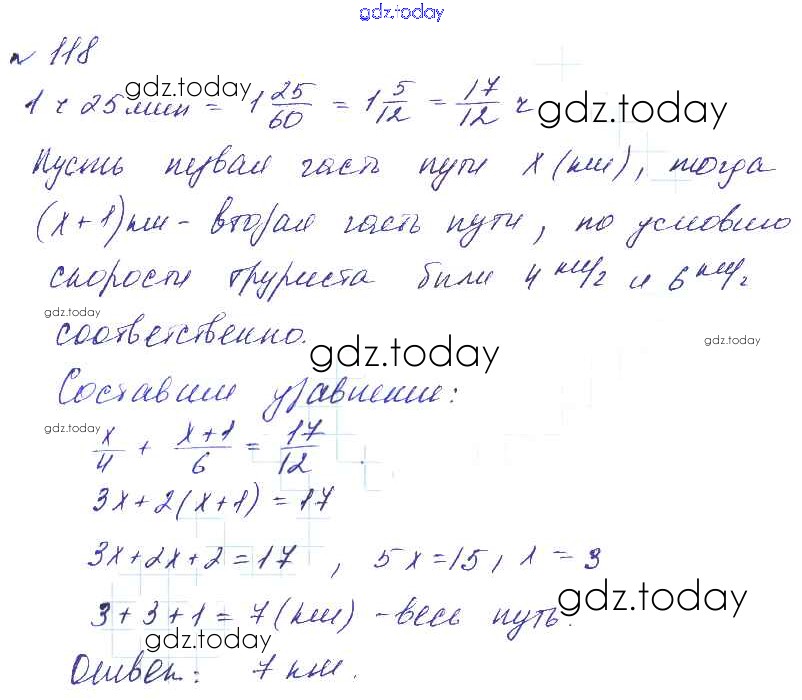 gdz.today
№ 118
gdz.today
1 ч 25 мин = 1 25/60 = 1 5/12 = 17/12 ч
gdz.today
Пусть первая часть пути x (км), тогда
(x+1) км - вторая часть пути, по условию
скорости туриста были 4 км/ч и 6 км/ч
gdz.today
соответственно.
gdz.today
gdz.today
Составим уравнение:
gdz.today
x/4 + (x+1)/6 = 17/12
3x+2(x+1)=17
3x+2x+2=17, 5x=15, x=3
gdz.today
3+3+1=7(км) - весь путь.
gdz.today
Ответ: 7 км.